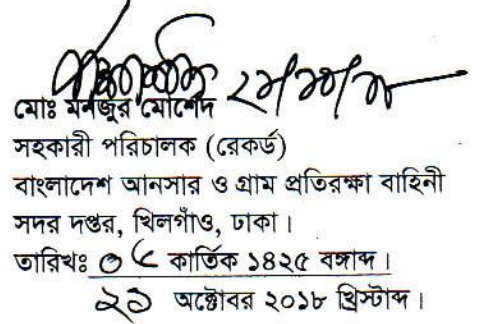 ২১/১০/১৮
মোঃ মনজুর মোর্শেদ
সহকারী পরিচালক (রেকর্ড)
বাংলাদেশ আনসার ও গ্রাম প্রতিরক্ষা বাহিনী
সদর দপ্তর, খিলগাঁও, ঢাকা।
তারিখঃ ০৬ কার্তিক ১৪২৫ বঙ্গাব্দ।
২১ অক্টোবর ২০১৮ খ্রিস্টাব্দ।